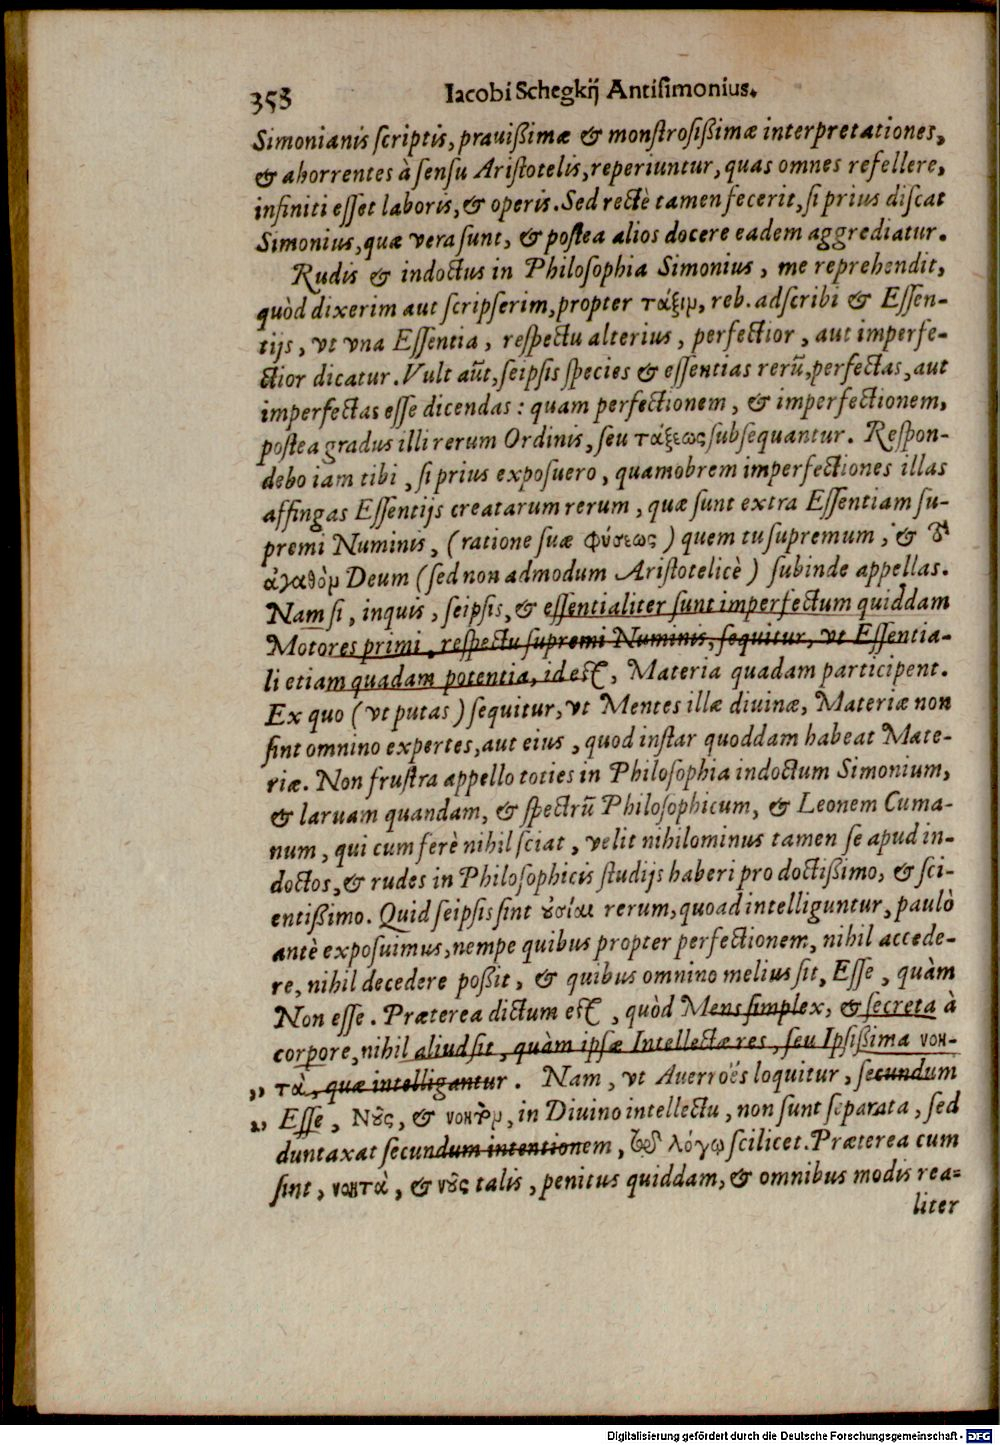 358 Iacobi Schegkij Antisimonius.
Simonianis ſcriptis, prauißimæ & monſtroſißimæ interpretationes,
& ahorrentes à ſenſu Ariſtotelis, reperiuntur, quas omnes refellere,
infiniti eſſet laboris, & operis. Sed rectè tamen fecerit, ſi prius diſcat
Simonius, quæ vera ſunt, & poſtea alios docere eadem aggrediatur.
Rudis & indoctus in Philoſophia Simonius, me reprehendit,
quòd dixerim aut ſcripſerim, propter τάξιν, reb. adſcribi & Eſſen-
tijs, vt vna Eſſentia, reſpectu alterius, perfectior, aut imperfe-
ctior dicatur. Vult aūt, ſeipſis ſpecies & eſſentias rerū, perfectas, aut
imperfectas eſſe dicendas: quam perfectionem, & imperfectionem,
poſtea gradus illi rerum Ordinis, ſeu τάξεως ſubſequantur. Reſpon-
debo iam tibi, ſi prius expoſuero, quamobrem imperfectiones illas
affingas Eſſentijs creatarum rerum, quæ ſunt extra Eſſentiam ſu-
premi Numinis, (ratione ſuæ φύσεως) quem tu ſupremum, &
ἀγαθὸν Deum (ſed non admodum Ariſtotelicè) ſubinde appellas.
Nam ſi, inquis, ſeipſis, & eſſentialiter ſunt imperfectum quiddam
Motores primi, reſpectu ſupremi Numinis, ſequitur, vt Eſſentia-
li etiam quadam potentia, id eſt, Materia quadam participent.
Ex quo (vt putas) ſequitur, vt Mentes illæ diuinæ, Materiæ non
ſint omnino expertes, aut eius, quod inſtar quoddam habeat Mate-
riæ. Non fruſtra appello toties in Philoſophia indoctum Simonium,
& laruam quandam, & ſpectrū Philoſophicum, & Leonem Cuma-
num, qui cum ferè nihil ſciat, velit nihilominus tamen ſe apud in-
doctos, & rudes in Philoſophicis ſtudijs haberi pro doctißimo, & ſci-
entißimo. Quid ſeipſis ſint ȣσίαι rerum, quoad intelliguntur, paulò
antè expoſuimus, nempe quibus propter perfectionem, nihil accede-
re, nihil decedere poßit, & quibus omnino melius ſit, Eſſe, quàm
Non eſſe. Præterea dictum eſt, quòd Mens ſimplex, & ſecreta à
corpore, nihil aliud ſit, quàm ipſæ Intellectæ res, ſeu Ipſißima νοη-
„ τὰ, quæ intelligantur. Nam, vt Auerroës loquitur, ſecundum
„ Eſſe, Νȣ͂ς, & νοητὸν, in Diuino intellectu, non ſunt ſeparata, ſed
duntaxat ſecundum intentionem, τῷ λόγῳ ſcilicet. Præterea cum
ſint, νοητὰ, & νȣ͂ς talis, penitus quiddam, & omnibus modis rea-
liter
Digitalisierung gefördert durch die Deutsche Forschungsgemeinschaft - DFG